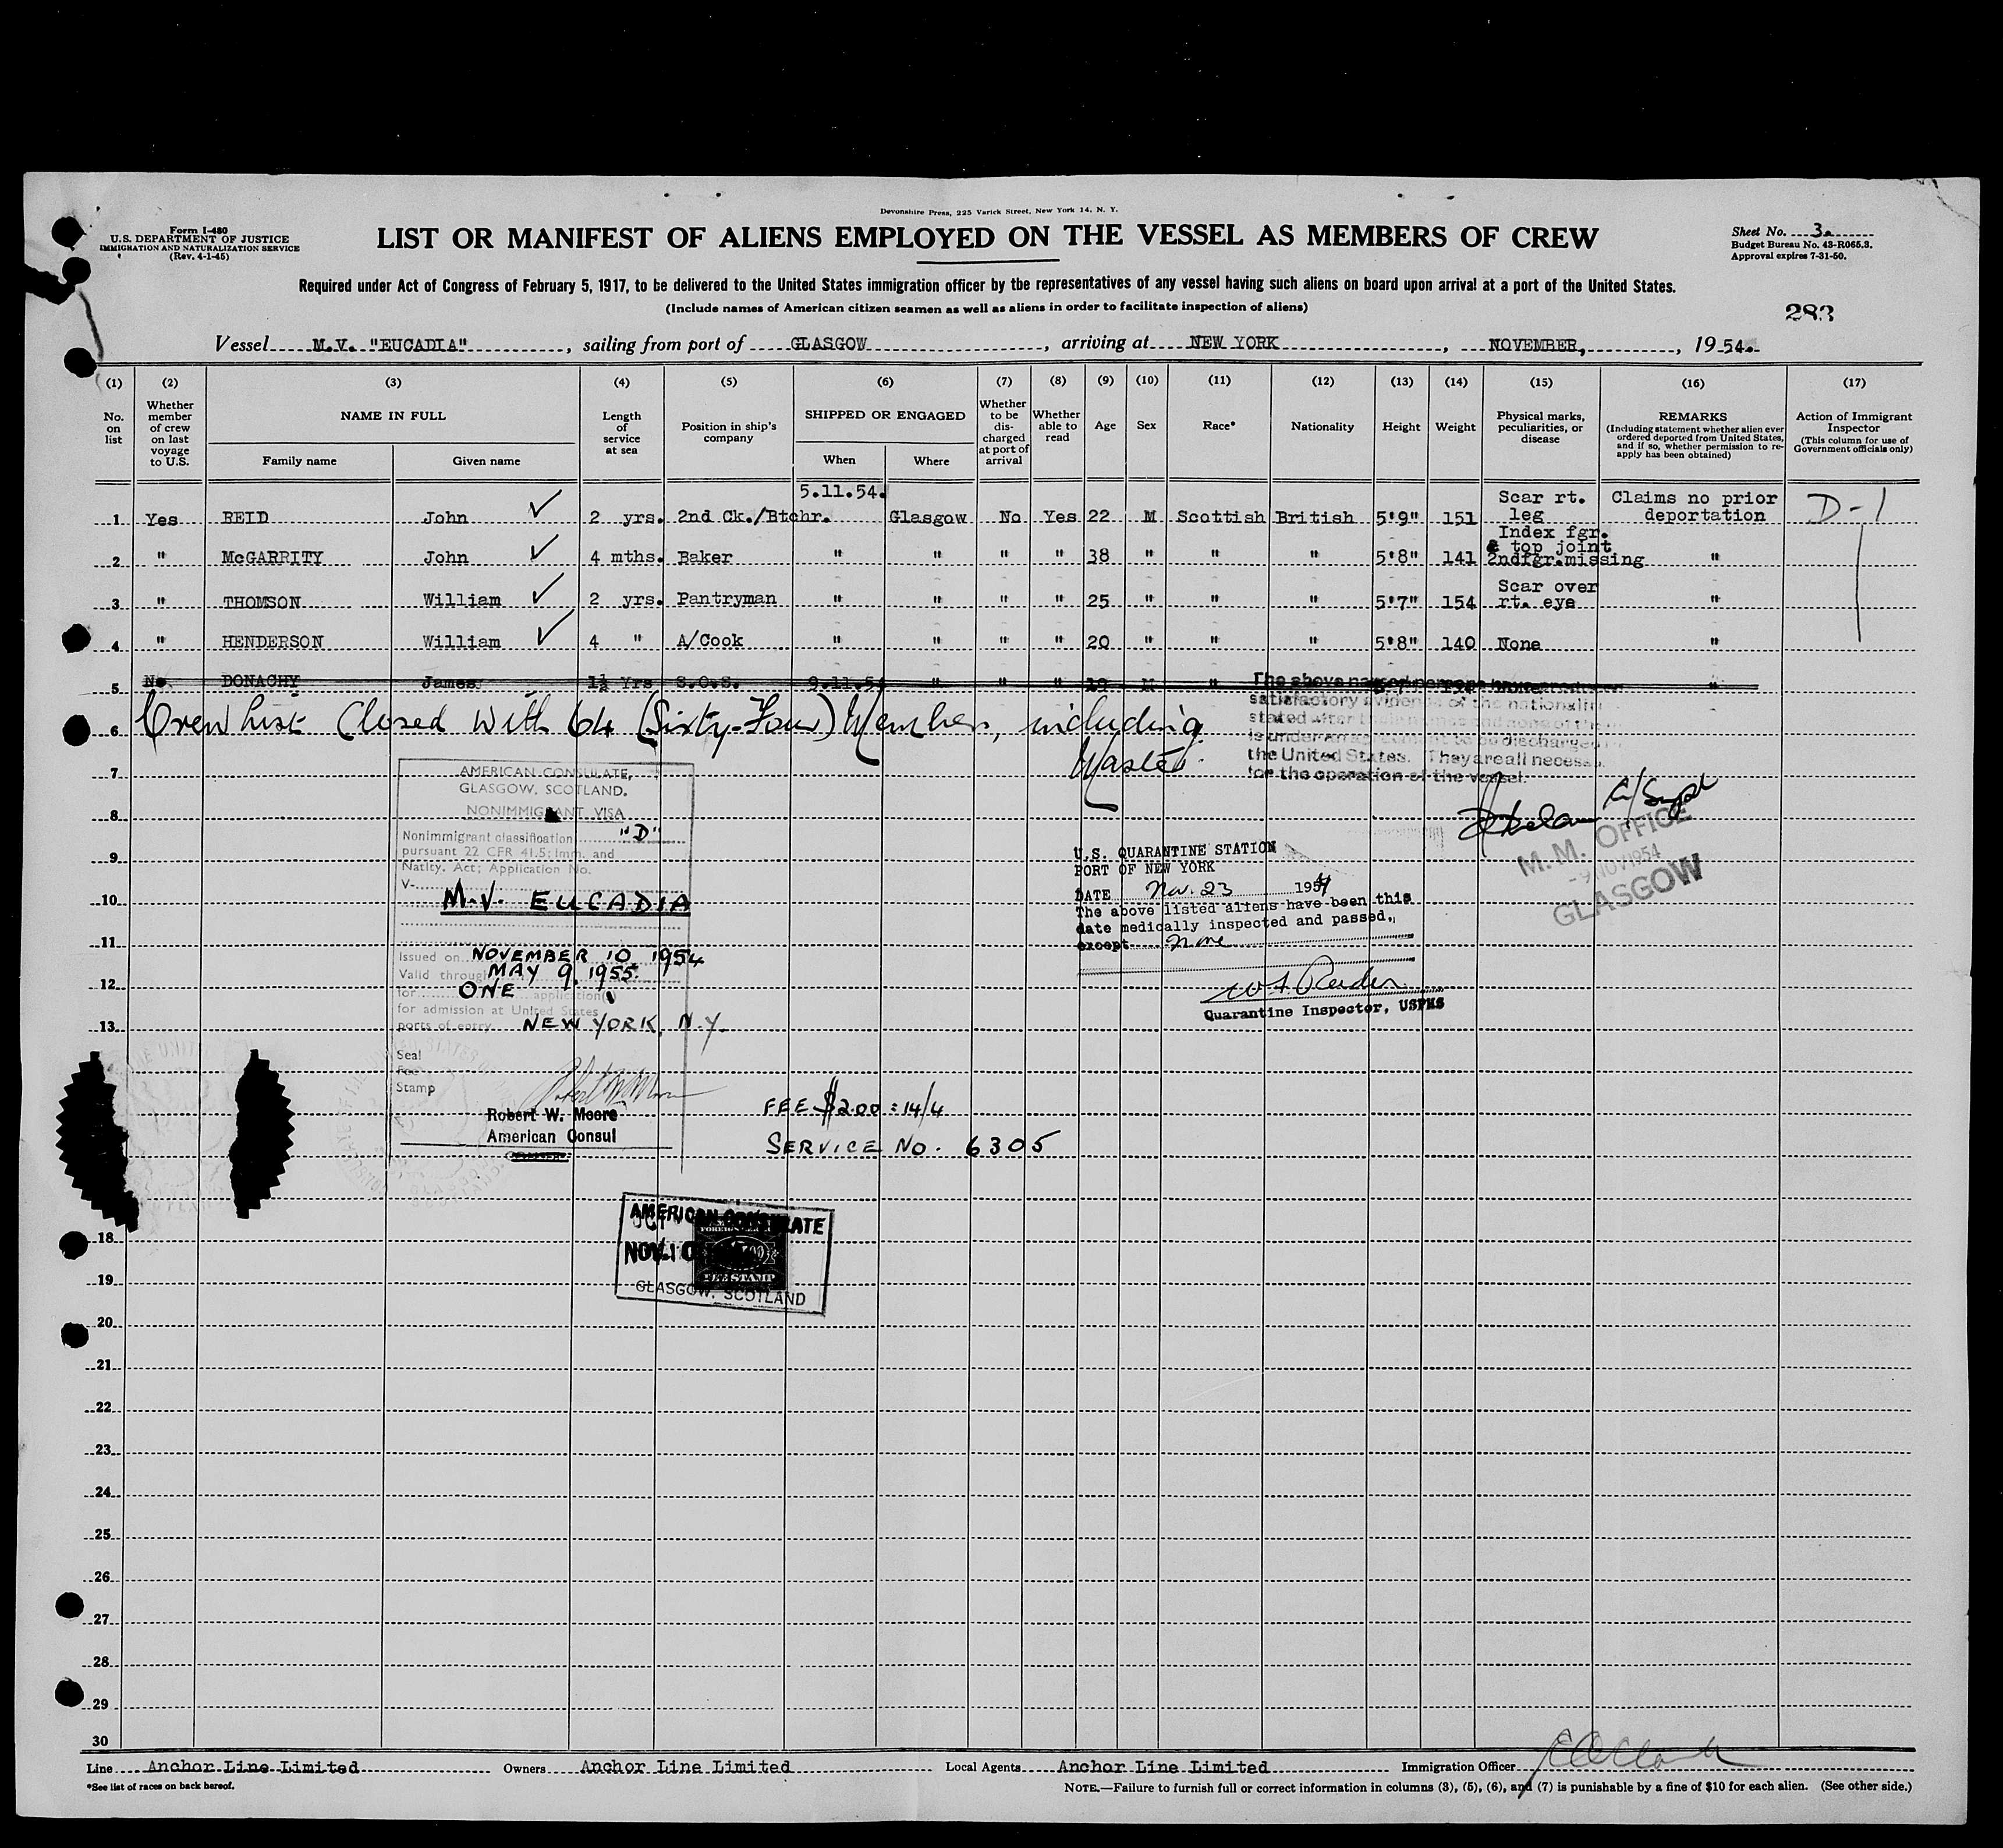 Devonshire Press, 225 Varick Street, New York 14, N. Y.
Form I-480
U.S. DEPARTMENT OF JUSTICE
IMMIGRATION AND NATURALIZATION SERVICE
(Rev. 4-1-45)
LIST OR MANIFEST OF ALIENS EMPLOYED ON THE VESSEL AS MEMBERS OF CREW
Sheet No. 3.
Budget Bureau No. 43-R065.3.
Approval expires 7-31-50.
Required under Act of Congress of February 5, 1917, to be delivered to the United States immigration officer by the representatives of any vessel having such aliens on board upon arrival at a port of the United States.
(Include names of American citizen seamen as well as aliens in order to facilitate inspection of aliens)
283
Vessel M.V. "EUCADIA", sailing from port of GLASGOW, arriving at NEW YORK, NOVEMBER, 1954.
(1) (2) (3) (4) (5) (6) (7) (8) (9) (10) (11) (12) (13) (14) (15) (16) (17)
No. on list
Whether member of crew on last voyage to U.S.
NAME IN FULL
Family name
Given name
Length of service at sea
Position in ship's company
SHIPPED OR ENGAGED
When
Where
Whether to be dis-charged at port of arrival
Whether able to read
Age
Sex
Race*
Nationality
Height
Weight
Physical marks, peculiarities, or disease
REMARKS
(Including statement whether alien ever ordered deported from United States, and if so, whether permission to re-apply has been obtained)
Action of Immigrant Inspector
(This column for use of Government officials only)
5.11.54.
1 Yes REID John ✓ 2 yrs. 2nd Ck./Btchr. Glasgow No Yes 22 M Scottish British 5'9" 151 Scar rt. leg Claims no prior deportation D-1
2 " McGARRITY John ✓ 4 mths. Baker " " " " 38 " " " 5'8" 141 Index fgr. & top joint 2ndfgr.missing "
3 " THOMSON William ✓ 2 yrs. Pantryman " " " " 25 " " " 5'7" 154 Scar over rt. eye "
4 " HENDERSON William ✓ 4 " A/Cook " " " " 20 " " " 5'8" 140 None "
5 No DONACHY James 1½ Yrs S.O.S. 9.11.54 " " " 19 M " "
6 Crew List Closed with 64 (Sixty-Four) Members, including
Master.
The above named persons
satisfactory evidence of the nationality
stated after their names and none of them
is under an agreement to be discharged in
the United States. They are all necessary
for the operation of the vessel.
M.M. OFFICE
-9 NOV 1954
GLASGOW
7
8
9
10
11
12
13
AMERICAN CONSULATE,
GLASGOW, SCOTLAND.
NONIMMIGRANT VISA
Nonimmigrant classification "D"
pursuant 22 CFR 41.5; Imm. and
Natlty. Act; Application No.
V-
M.V. EUCADIA
Issued on NOVEMBER 10 1954
Valid through MAY 9, 1955.
for ONE application(s)
for admission at United States
ports of entry. NEW YORK, N.Y.
Seal
Fee
Stamp
Robert W. Moore
American Consul
U.S. QUARANTINE STATION
PORT OF NEW YORK
DATE Nov. 23 1954
The above listed aliens have been this
date medically inspected and passed,
except none
Quarantine Inspector, USPHS
FEE $2.00 = 14/4
SERVICE NO. 6305
AMERICAN CONSULATE
NOV 10
FEE STAMP
GLASGOW, SCOTLAND
18
19
20
21
22
23
24
25
26
27
28
29
30
Line Anchor Line Limited Owners Anchor Line Limited Local Agents Anchor Line Limited Immigration Officer
*See list of races on back hereof.
NOTE.—Failure to furnish full or correct information in columns (3), (5), (6), and (7) is punishable by a fine of $10 for each alien. (See other side.)